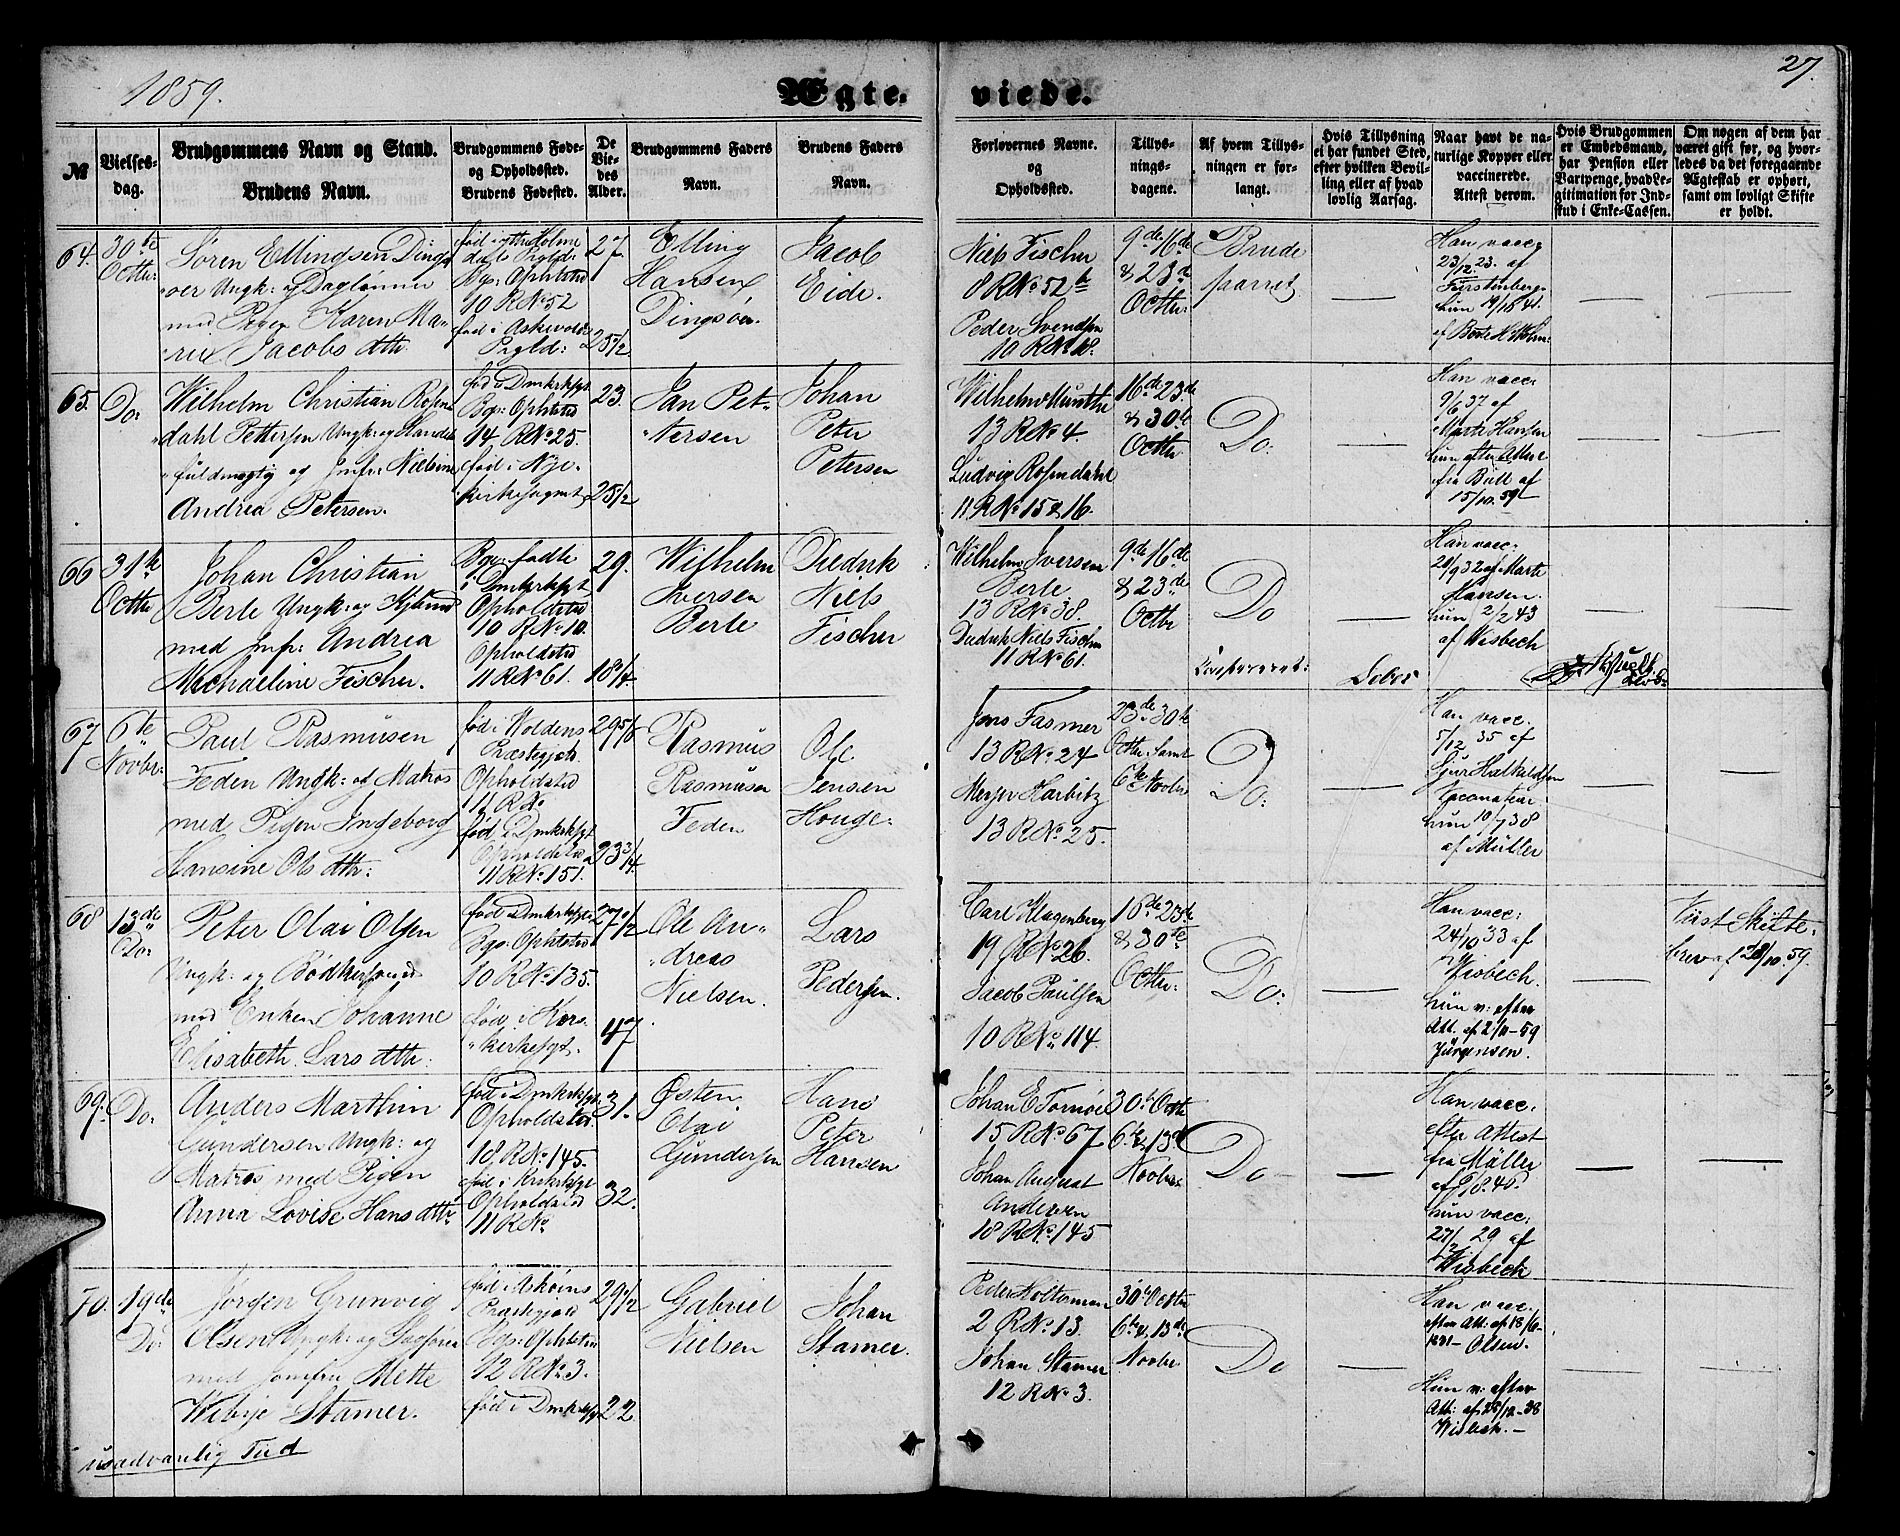 1859.
Ægte. viede.
27.
№
Vielses-
dag.
Brudgommens Navn og Stand.
Brudens Navn.
Brudgommens Føde-
og Opholdssted.
Brudens Fødested.
De
Vie-
des
Alder.
Brudgommens Faders
Navn.
Brudens Faders
Navn.
Forlovernes Navne.
og
Opholdssted.
Tillys-
nings-
dagene.
Af hvem Tillys-
ningen er for-
langt.
Hvis Tillysning
ei har fundet Sted,
efter hvilken Bevil-
ling eller af hvad
lovlig Aarsag.
Naar havt de na-
turlige Kopper eller
vaccinerede.
Attest derom.
Hvis Brudgommen
er Embedsmand,
har Pension eller
Vartpenge, hvad Le-
gitimation for Ind-
skud i Enke-Cassen.
Om nogen af dem har
været gift før, og hvor-
ledes da det foregaaende
Ægteskab er ophørt,
samt om lovligt Skifte
er holdt.
64.
30te
Octbr:
Søren Ellingsen Dings-
oer Ungk: og Daglønner
med Pigen Karen Ma-
rie Jacobs dtr.
Bgs: Ophsted
10 R№52
fød i Askevolds
Prgld:
27
25½
Elling
Hansen
Dingsøer.
Jacob
Eide.
Niels Fischer
8 R№ 52b
Peder Svendsen
10 R№ 18.
9de 16de
& 23de
Octbr:
Brude
parret
Han vacc.
23/12. 23. af
Fürstenberg
hun 19/10 41.
65.
Do:
Wilhelm Christian Rosen-
dahl Pettersen Ungk: og Handels
fuldmægtig og Jmfr: Nielsine
Andrea Petersen.
fød i Dmkrksgt
Bgs: Ophsted
14 R№ 25.
fød i Nye-
kirkesogn
23.
25½
Jan Pet-
tersen
Johan
Peter
Petersen
Wilhelm Munthe
13 R№ 4
Ludvig Rosendahl
11 R№ 15 & 16.
16de 23de
& 30te
Octbr
Do:
Han vacc.
9/6 37 af
Marte Hansen
hun efter Attest
fra Bull af
15/10. 59
66
31te
Octbr
Johan Christian
Berle Ungk: og
med Jmfr: Andrea
Michaeline Fischer.
Bgs: fødte
i Dmkrksgt
Opholdsted
10 R№ 10.
Opholdsted
11 R№ 61.
29.
18¼.
Wilhelm
Iversen
Berle
Diedrik
Niels
Fischer
Wilhelm Iversen
Berle
13 R№ 38.
Diedrik Niels Fischer
11 R№ 61.
9de 16de
& 23de
Octbr
Do
Han vacc.
20/9 32 af Marte
Hansen.
hun 2/2 43
af Wisbech
67
6te
Novbr:
Paul Rasmusen
Feden Ungk: og Matros
med Pigen Ingeborg
Hansine Ols dtr:
fød i Holdens
Præstegjeld.
Opholdsted
11 R№
fød i Dmkrksgt
Opholdsted
11 R№ 151.
29 5/6
23 3/4.
Rasmus
Rasmusen
Feden
Ole
Jensen
Houge.
Jens Fasmer
13 R№ 24
Meyer Harbitz
13 R№ 25.
23de 30te
Octbr. samt
6te Novbr
Do:
Han vacc.
5/12 35 af
Sjur Halkeldsen
Vaccinateur.
hun 10/7 38
af Müller
68
13de
Do:
Peter Olai Olsen
Ungk: og Bødkersvend
med Enken Johanne
Elisabeth Lars dtr:
fød i Dmkrksgt
Bgs: Ophsted
10 R№ 135.
fød i Kors-
kirkesgt.
27½
47
Ole An-
dreas
Nielsen.
Lars
Pedersen.
Carl Klagenberg
19 R№ 26.
Jacob Paulsen
10 R№ 114.
16de 23de
& 30te
Octbr:
Do:
Han vacc:
24/10 33 af
Wisbech.
hun v: efter
Att. af 2/11-59
Jürgensen.
Viist Skifte-
brev af 28/10. 59.
69.
Do:
Anders Marthin
Gundersen Ungk: og
Matros med Pigen
Anna Lovise Hans dtr.
fød i Dmkrksgt
Opholdsted
18 R№ 145.
Opholdsted
11 R№
31.
32.
Østen
Olai
Gundersen
Hans
Peter
Hansen
Johan E Tornøe
15 R№ 67
Johan August
Andersen
18 R№ 145
30te Octbr
6te & 13de
Novbr
Do
Han vacc.
efter Attest
fra Müller
af 9/8. 40.
hun vacc:
29 af
Wisbech
70.
19de
Do:
Jørgen Grunvig
Olsen Ungk: og
med Jomfru Mette
Wibye Stamer.
fød i Askøens
Præstegjeld
Bgs: Ophsted
12 R№ 3.
fød i Dmkrksgt
29½
22
Gabriel
Nielsen
Johan
Stamer.
Peder Holterman
2 R№ 13.
Johan Stamer
12 R№ 3.
30te Octbr
6te & 13de
Novbr
Do
Han vacc.
efter Att: af 18/6-
1831- Olsen.
Hun v: efter
Att: af 28/12-38
Wisbech.-
usædvanlig Tid